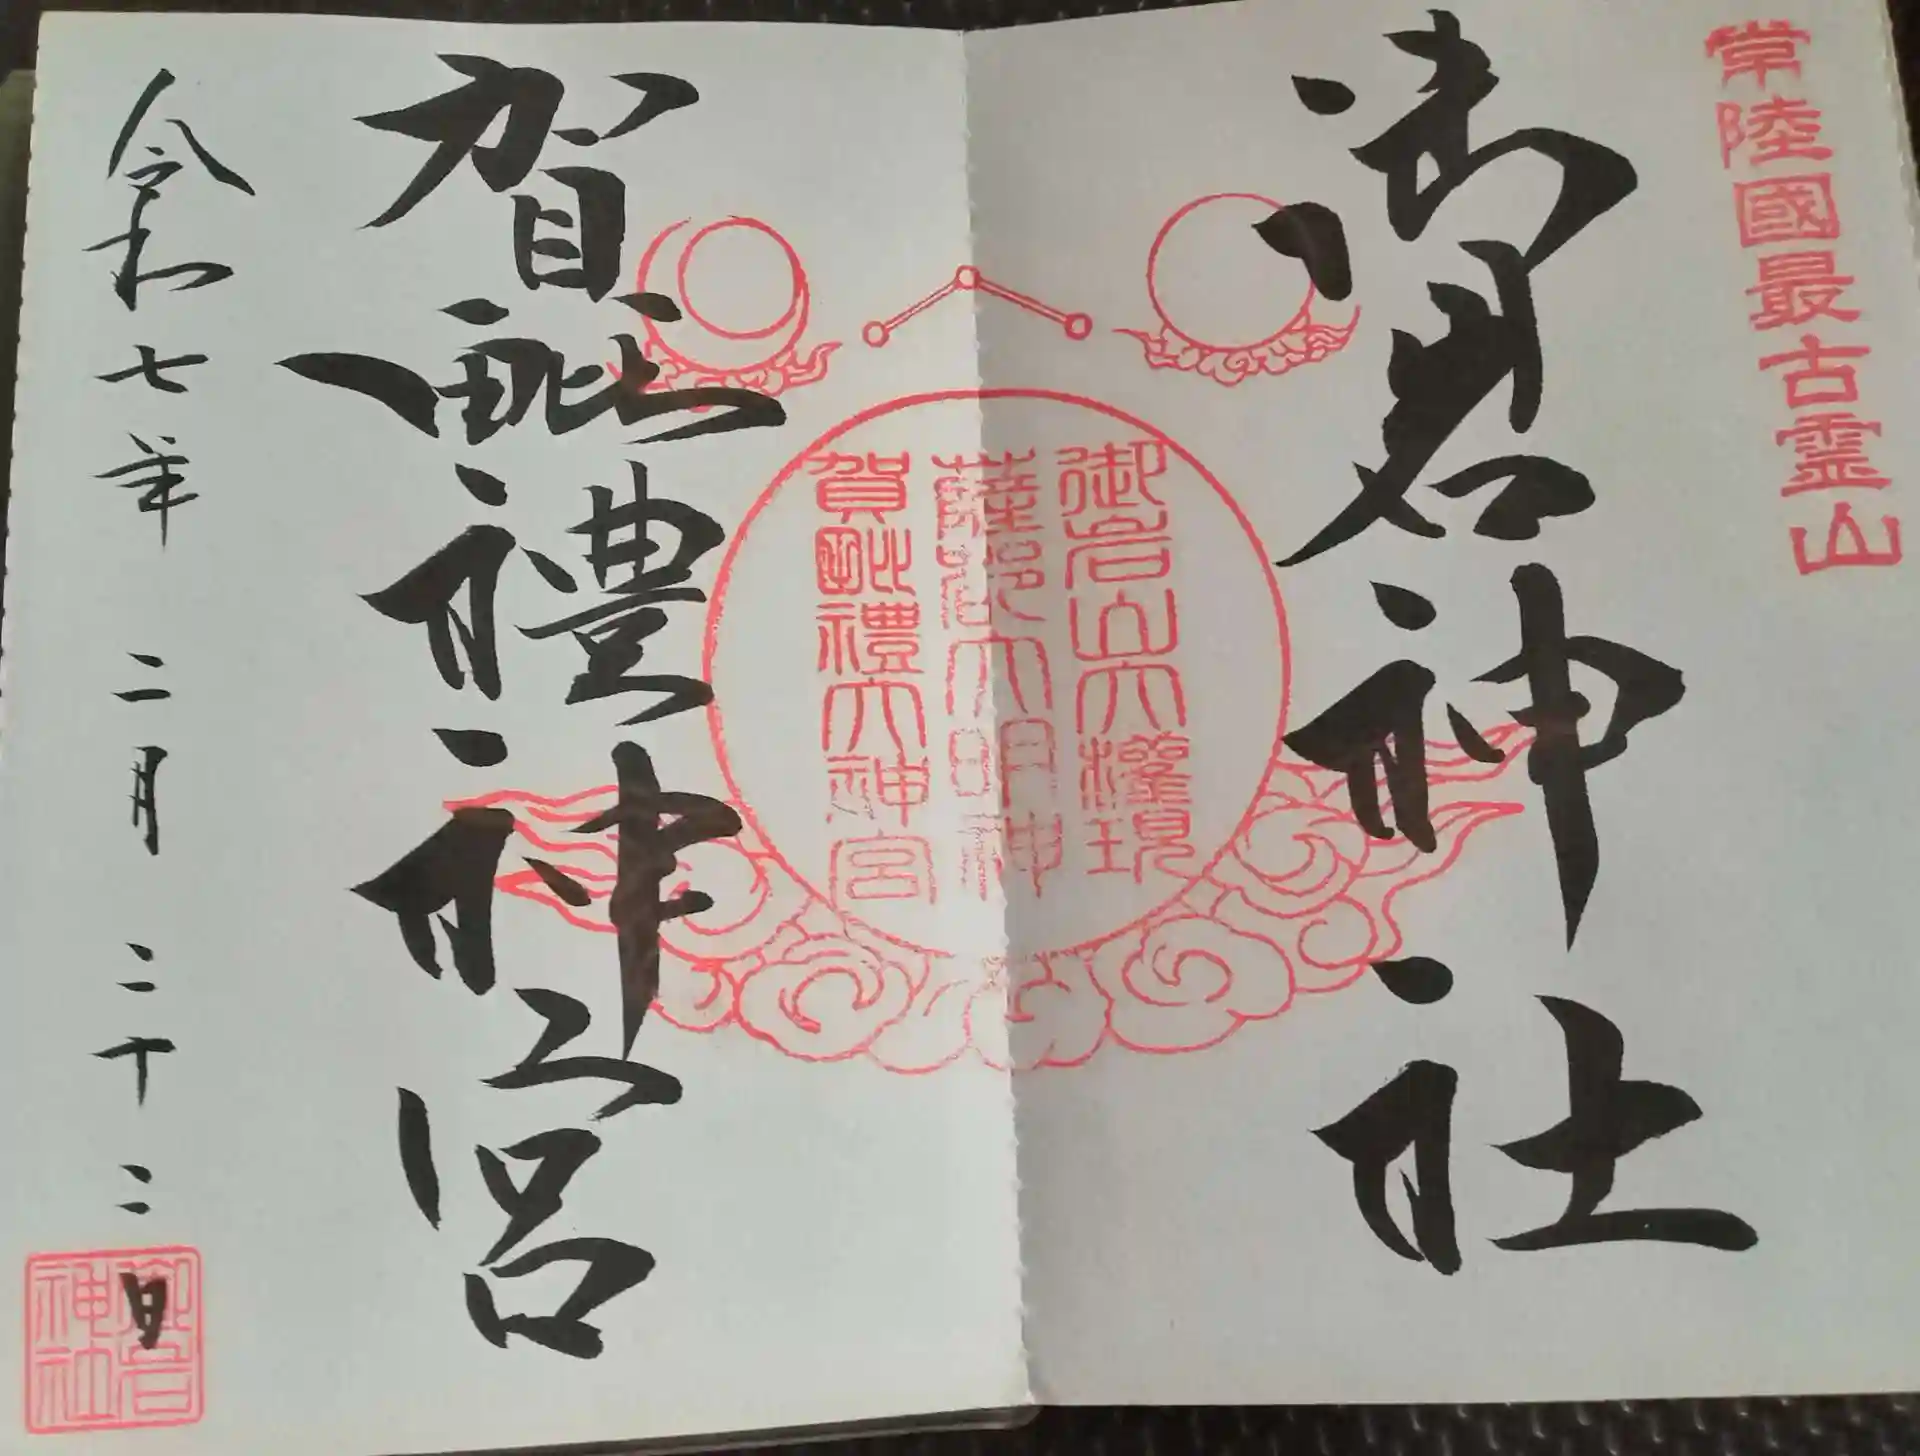 常陸國最古霊山
御岩神社
御岩山大權現
薩都大明神
賀毗禮大神宮
賀毗禮神宮
令和七年 二月 二十二日
御岩
神社